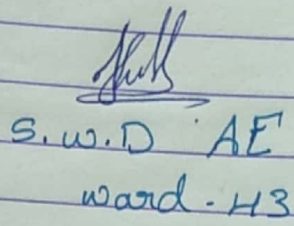 S.W.D AE
ward - 43